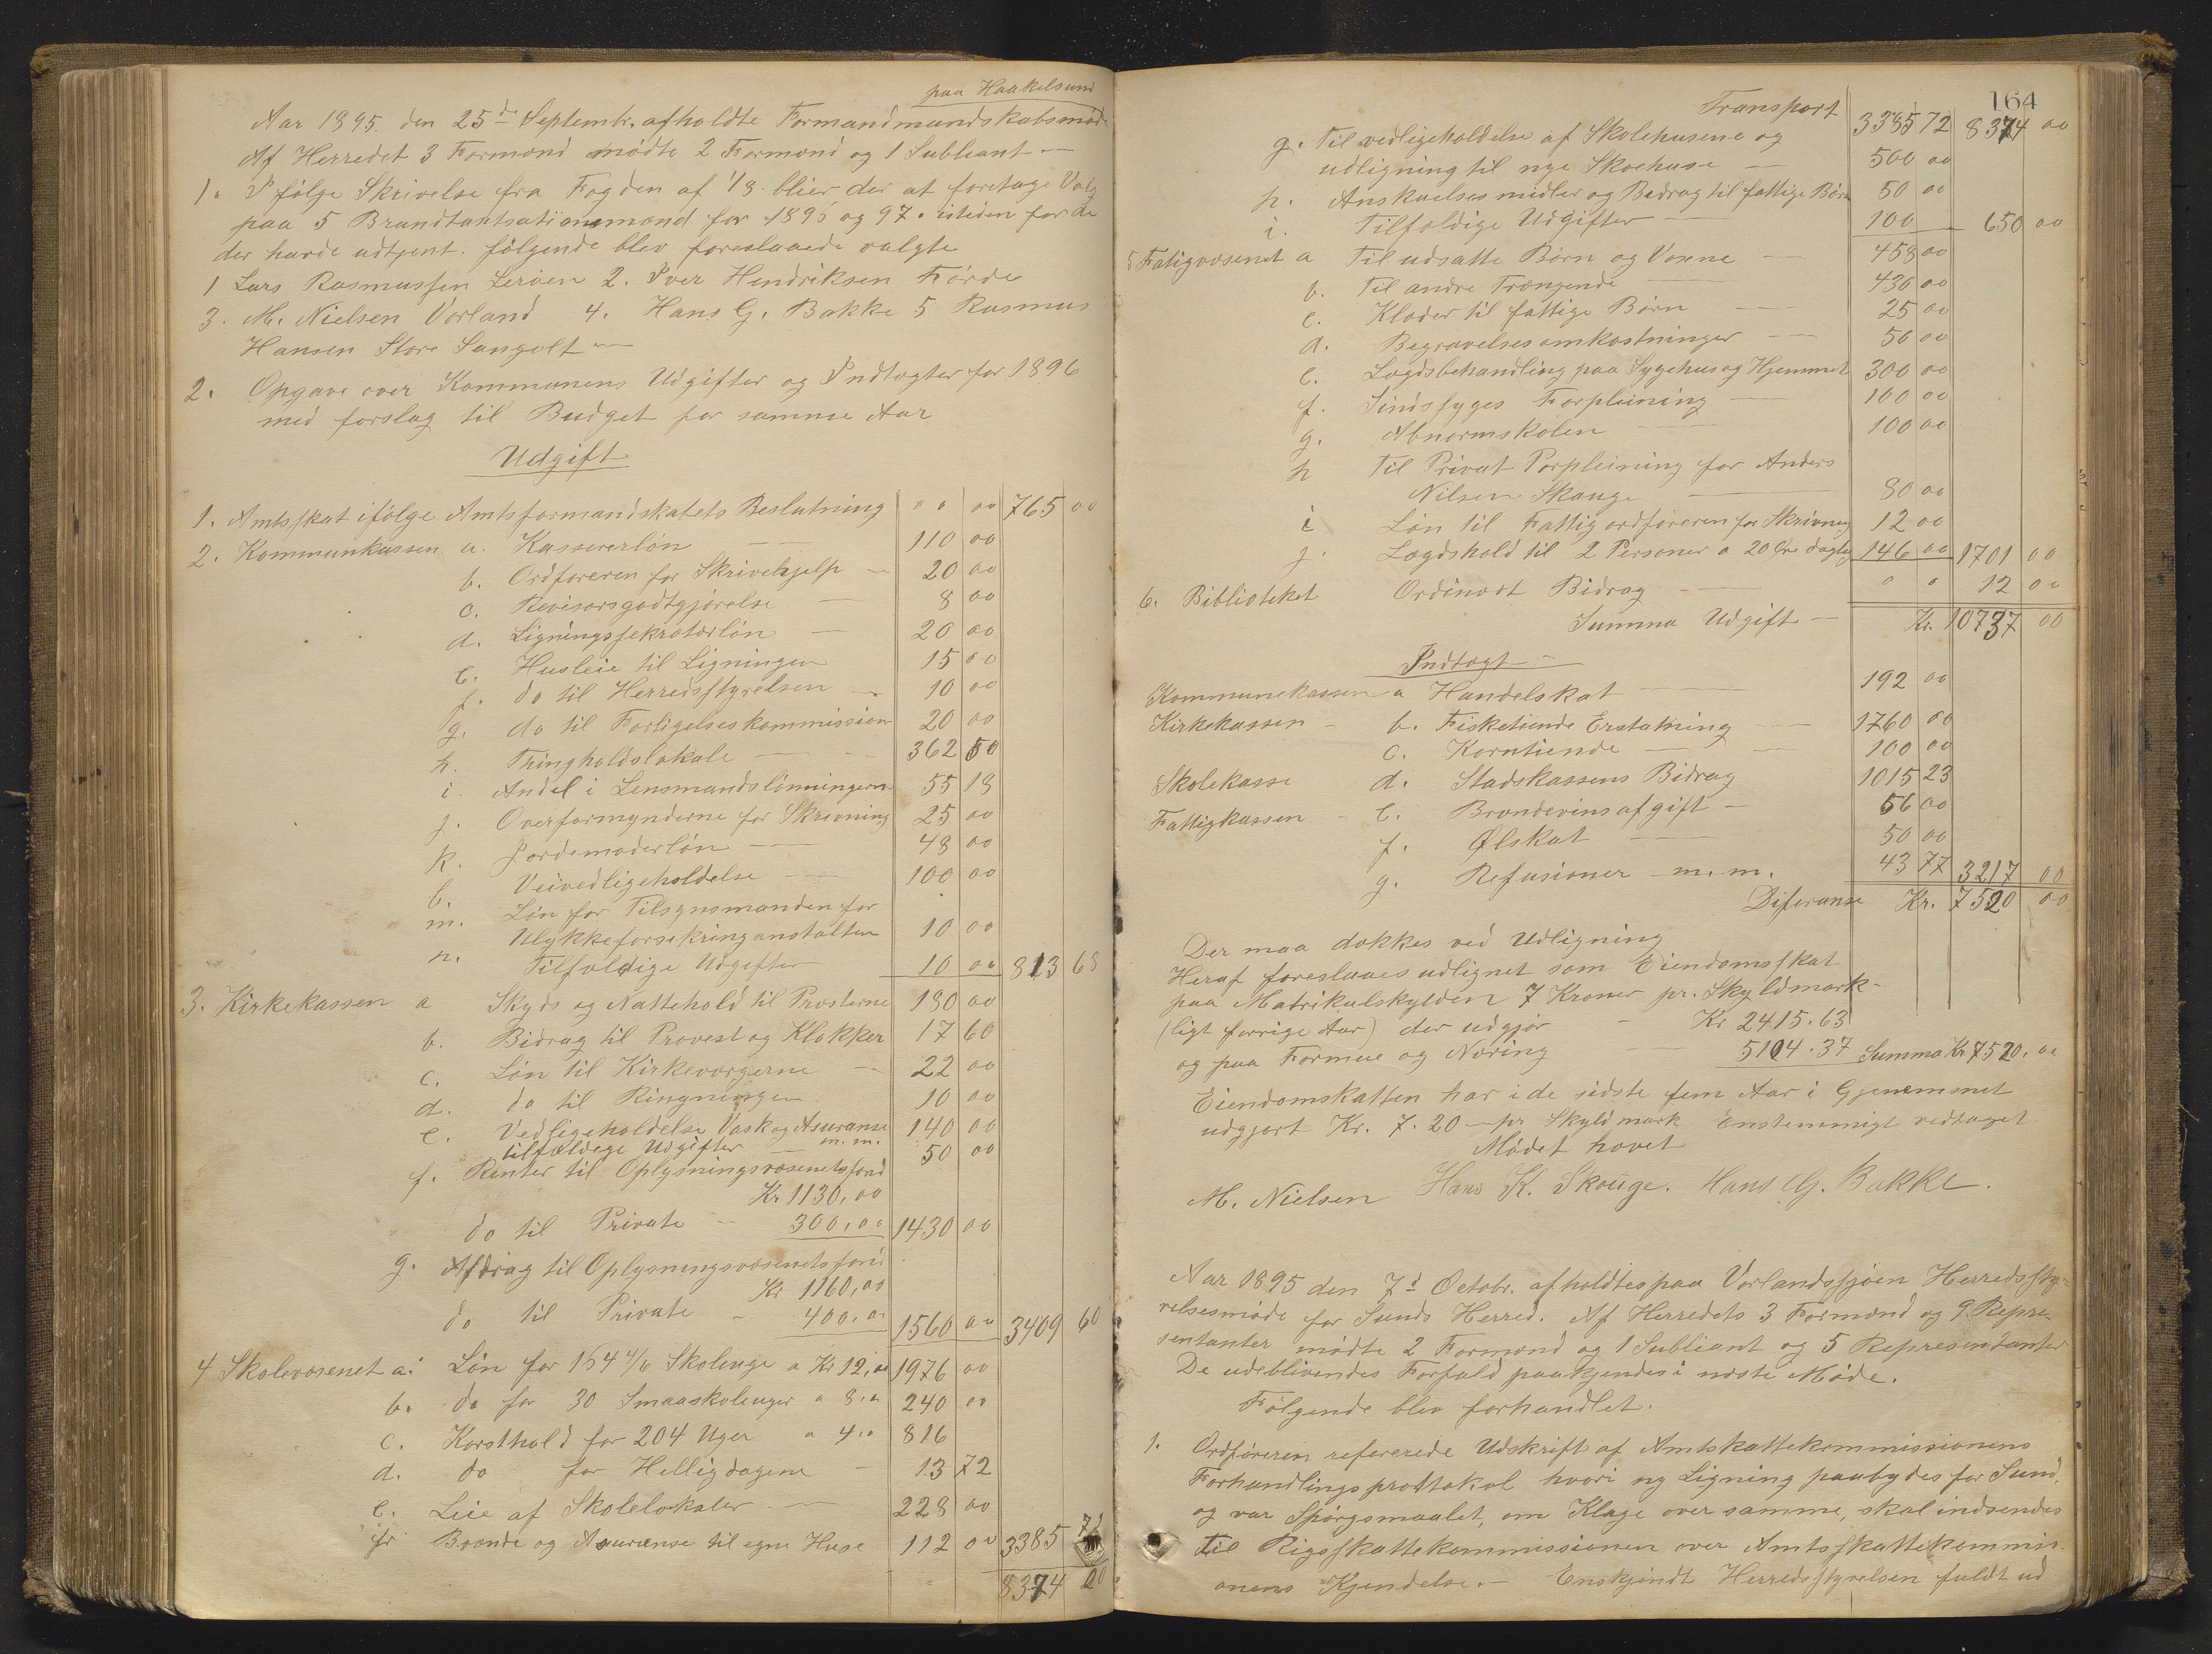 paa Haakelsund
Aar 1895. den 25de Septembr. afholdte Formandmandskabsmøde
Af Herredet 3 Formænd mødte 2 Formænd og 1 Subliant —
1. Ifølge Skrivelse fra Fogden af 1/8 blier der at foretage Valg
paa 5 Brandtaxtsationsmænd for 1896 og 97. isteden for de
der havde udtjent. følgende blev foreslaaede valgte
1 Lars Rasmussen Lerøen 2. Iver Hendriksen Førde
3. M. Nielsen Vorland 4. Hans G. Bakke 5 Rasmus
Hansen Store Sangolt —
2. Opgave over Kommunens Udgifter og Indtægter for 1896
med forslag til Budget for samme Aar
Udgift
1. Amtsskat ifølge Amtsformandskabets Beslutning " " 00 765 00
2. Kommunkassen a. Kassererløn — 110 00
b. Ordføreren for Skrivehjelp — 20 00
c. Revisorsgodtgjørelse — 8 00
d. Ligningssekretærløn — 20 00
e. Husleie til Ligningen 15 00
f. do til Herredsstyrelsen — 10 00
g. do til Forligelseskommission 20 00
h. Thingholdslokale — 362 50
i. Andel i Lensmandslønningerne 55 18
j. Overformynderne for Skrivning 25 00
k. Jordemoderløn — 48 00
l. Veivedligeholdelse — 100 00
m. Løn for Tilsynsmanden for
Ulykkeforsikringanstalten 10 00
n. Tilfældige Udgifter 10 00 813 68
3. Kirkekassen a Skyds og Nattehold til Presterne 180 00
b. Bidrag til Provest og Klokker 17 60
c. Løn til Kirkeværgerne — 22 00
d. do til Ringningen 10 00
e. Vedligeholdelse Vask og Asuranse m. m. 140 00
tilfældige Udgifter — 50 00
f. Renter til Oplysningsvæsenetsfond
Kr. 1130,00
do til Private — 300,00 1430 00
g. Afdrag til Oplysningsvæsenetsfond
Kr 1160,00
do til Private - 400,00 1560 00 3409 60
4 Skolevæsenet a. Løn for 164 4/6 Skoleuge a Kr 12,00 1976 00
b. do for 30 Smaaskoleuger a 8,00 240 00
c. Kosthold for 204 Uger a 4,0 816
d. do for Helligdagene — 13 72
e. Leie af Skolelokaler — 228 00
f Brænde og Asuranse til egne Huse 112 00 3385 72
8374 00
164
Transport 3385 72 8374 00
g. Til vedligeholdelse af Skolehusene og
udligning til nye Skoehuse — 500 00
h. Anskuelsesmidler og Bedrag til fattige Børn 50 00
i. Tilfældige Udgifter — 100 650 00
5 Fatigvæsenet a Til udsatte Børn og Voxne — 458 00
b. Til andre Trængende — 430 00
c. Klæder til fattige Børn — 25 00
d. Begravelsesomkostninger — 50 00
e. Lægdsbehandling paa Sygehus og Hjemmet 300 00
f. Sindssyges Forpleining — 100 00
g. Abnormskolen — 100 00
h Til Privat Forpleining for Anders
Nilsen Skauge — 80 00
i Løn til Fattigordføreren for Skrivning 12 00
j. Lægdshold til 2 Personer a 20 Øre daglig 146 00 1701 00
6. Biblioteket Ordinært Bidrag — " " 12 00
Summa Udgift — Kr. 10737 00
Indtægt —
Kommunekassen a Handelskat — 192 00
Kirkekassen - b. Fisketiende Erstatning — 1760 00
c. Korntiende — 100 00
Skolekasse d. Stadskassens Bidrag 1015 23
Fattigkassen - e. Brændevinsafgift — 56 00
f. Ølskat — 50 00
g. Refusioner m. m. 43 77 3217 00
Diferanse Kr. 7520 00
Der maa dækkes ved Udligning
Heraf foreslaaes udlignet som Eiendomsskat
paa Matrikulskylden 7 Kroner pr. Skyldmark-
(ligt forrige Aar) der udgjør - Kr 2415.63
og paa Formue og Næring — 5104.37 Summa Kr 7520.00
Eiendomskatten har i de sidste fem Aar i Gjenemsnet
udgjort Kr. 7.20 — pr Skyldmark Enstemmigt vedtaget
Mødet hævet
M. Nielsen Hans K. Skouge. Hans G. Bakke.
Aar 1895 den 7d Octobr. afholdtes paa Vorlandssjøen Herredssty-
relsesmøde for Sunds Herred. Af Herredets 3 Formænd og 9 Repre-
sentanter mødte 2 Formænd og 1 Subliant og 5 Representanter
De udeblivendes Forfald paakjendes i næste Møde.
Følgende blev forhandlet.
1. Ordføreren refererede Udskrift af Amtskattekommissionens
Forhandlingsprottokol hvori ny Ligning paabydes for Sund,
og var Spørgsmaalet, om Klage over samme, skal indsendes
til Rigsskattekommissionen over Amtsskattekommis-
onens Kjendelse. — Enskjøndt Herredsstyrelsen fuldt ud